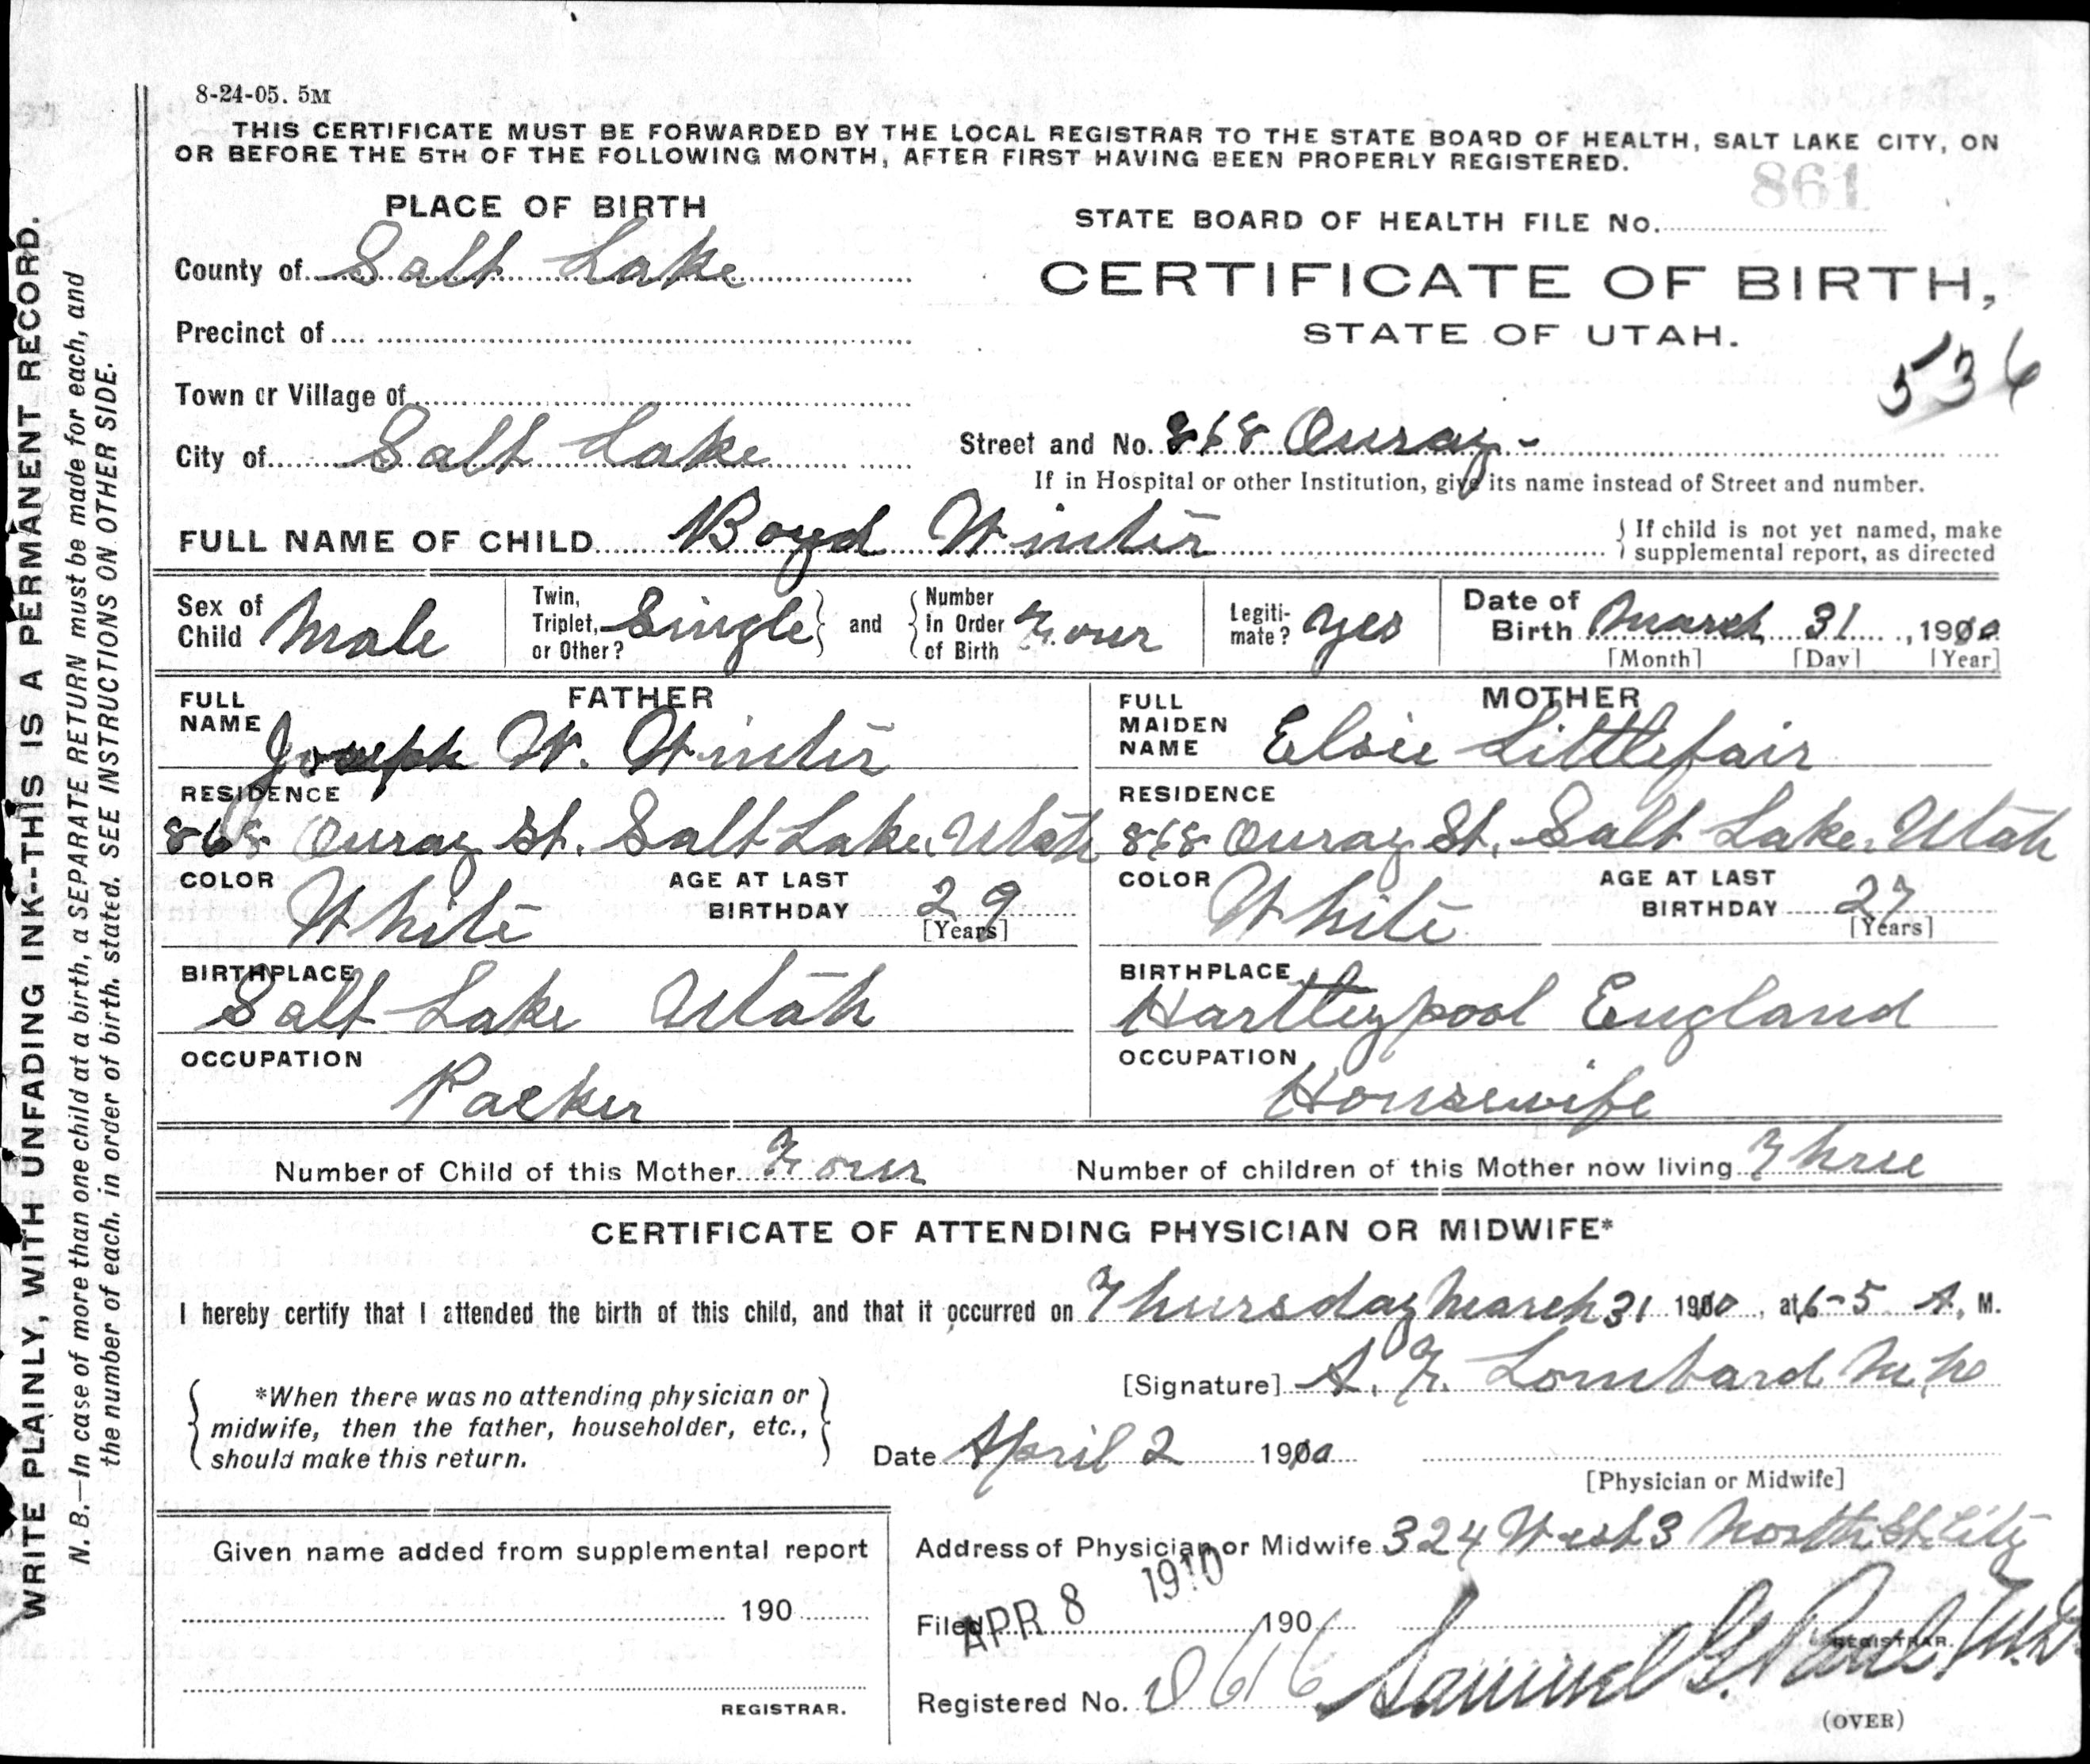 8-24-05. 5M
THIS CERTIFICATE MUST BE FORWARDED BY THE LOCAL REGISTRAR TO THE STATE BOARD OF HEALTH, SALT LAKE CITY, ON
OR BEFORE THE 5TH OF THE FOLLOWING MONTH, AFTER FIRST HAVING BEEN PROPERLY REGISTERED.
WRITE PLAINLY, WITH UNFADING INK--THIS IS A PERMANENT RECORD.
N. B.—In case of more than one child at a birth, a SEPARATE RETURN must be made for each, and
the number of each, in order of birth, stated. SEE INSTRUCTIONS ON OTHER SIDE.
861
PLACE OF BIRTH
STATE BOARD OF HEALTH FILE No.
County of Salt Lake
CERTIFICATE OF BIRTH,
Precinct of
STATE OF UTAH.
536
Town or Village of
City of Salt Lake
Street and No. 868 Ouray -
If in Hospital or other Institution, give its name instead of Street and number.
FULL NAME OF CHILD Boyd Winter
If child is not yet named, make
supplemental report, as directed
Sex of Child Male
Twin, Triplet, or Other? Single and
Number in Order of Birth Four
Legiti- mate? Yes
Date of Birth March 31, 1910
[Month] [Day] [Year]
FATHER
FULL NAME Joseph W. Winter
MOTHER
FULL MAIDEN NAME Elsie Littlefair
RESIDENCE
868 Ouray St. Salt Lake, Utah
RESIDENCE
868 Ouray St. Salt Lake, Utah
COLOR White
AGE AT LAST BIRTHDAY 29
[Years]
COLOR White
AGE AT LAST BIRTHDAY 27
[Years]
BIRTHPLACE
Salt Lake Utah
BIRTHPLACE
Hartleypool England
OCCUPATION
Packer
OCCUPATION
Housewife
Number of Child of this Mother Four
Number of children of this Mother now living Three
CERTIFICATE OF ATTENDING PHYSICIAN OR MIDWIFE*
I hereby certify that I attended the birth of this child, and that it occurred on Thursday March 31 1910, at 6-5 A. M.
*When there was no attending physician or
midwife, then the father, householder, etc.,
should make this return.
[Signature] A. F. Lombard M.D.
Date April 2 1910
[Physician or Midwife]
Given name added from supplemental report
190
REGISTRAR.
Address of Physician or Midwife 324 West 3 North St. City
Filed APR 8 1910 190
Samuel G. Paul, M.D.
REGISTRAR.
Registered No. 616
(OVER)